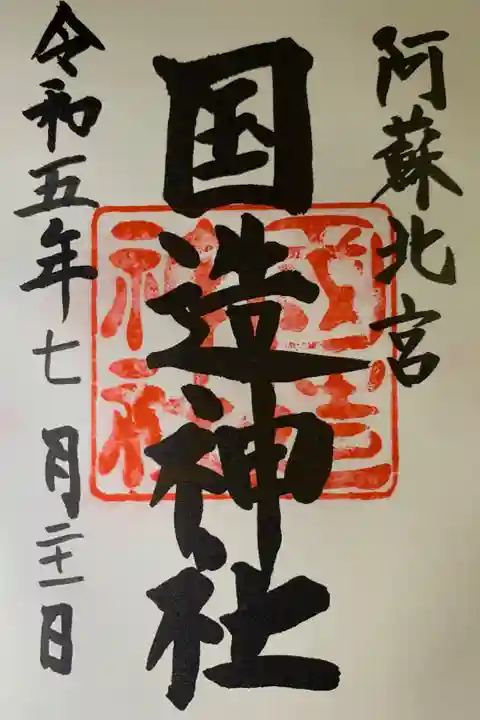 阿蘇北宮
国造神社
令和五年七月二十一日